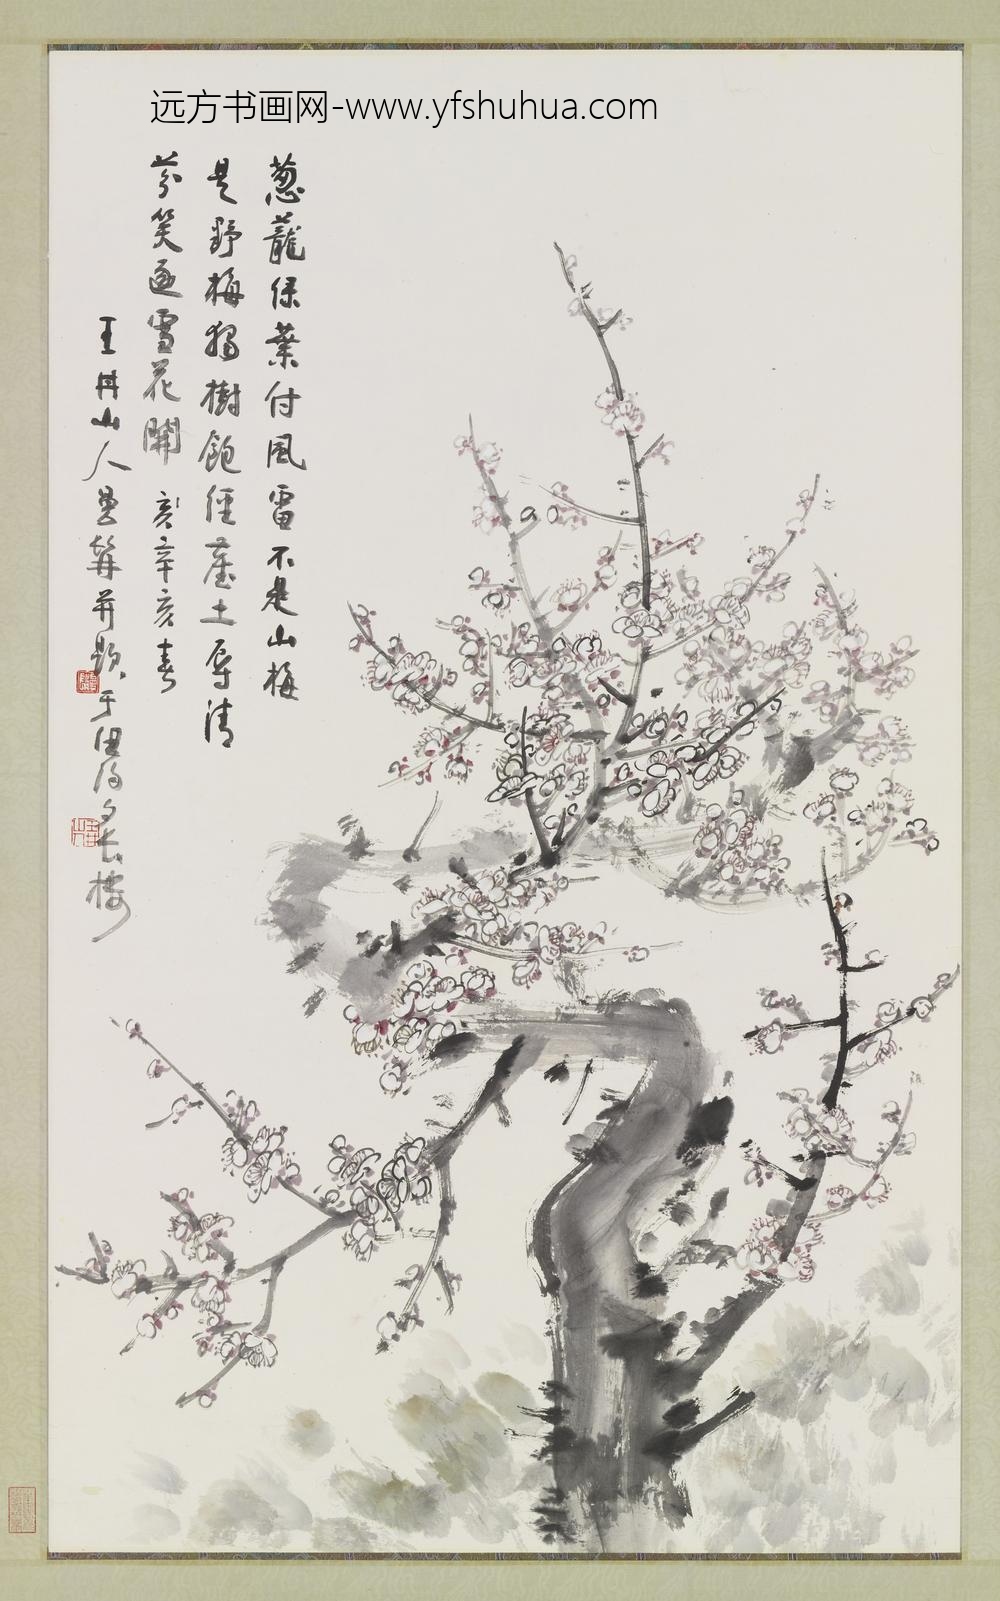 远方书画网-www.yfshuhua.com
蔥蘢綠葉付風雷不是山梅
是野梅獨樹飽經塵土辱清
芬笑逐雪花開 辛亥春
王丹山人 并題于